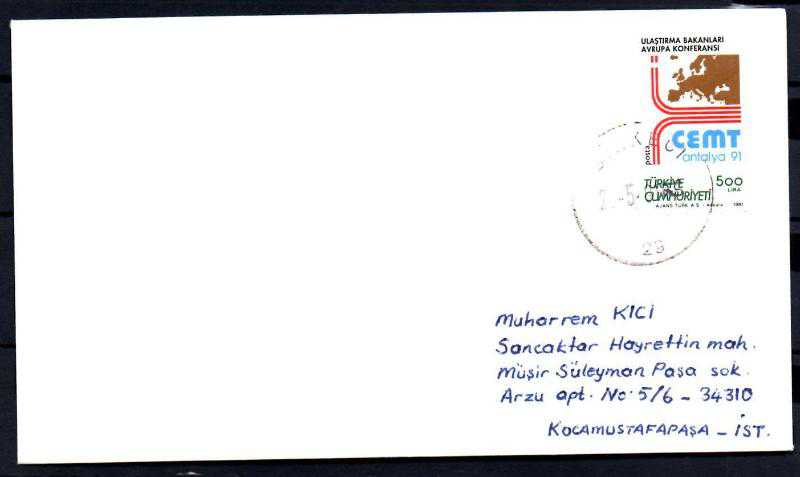 ULAŞTIRMA BAKANLARI
AVRUPA KONFERANSI
CEMT
antalya 91
posta
500
LİRA
TÜRKİYE
CUMHURİYETİ
AJANS-TÜRK A.Ş. - Ankara 1991
29
Muharrem KICI
Sancaktar Hayrettin mah.
Müşir Süleyman Paşa sok.
Arzu apt. No: 5/6 - 34310
KOCAMUSTAFAPAŞA - İST.